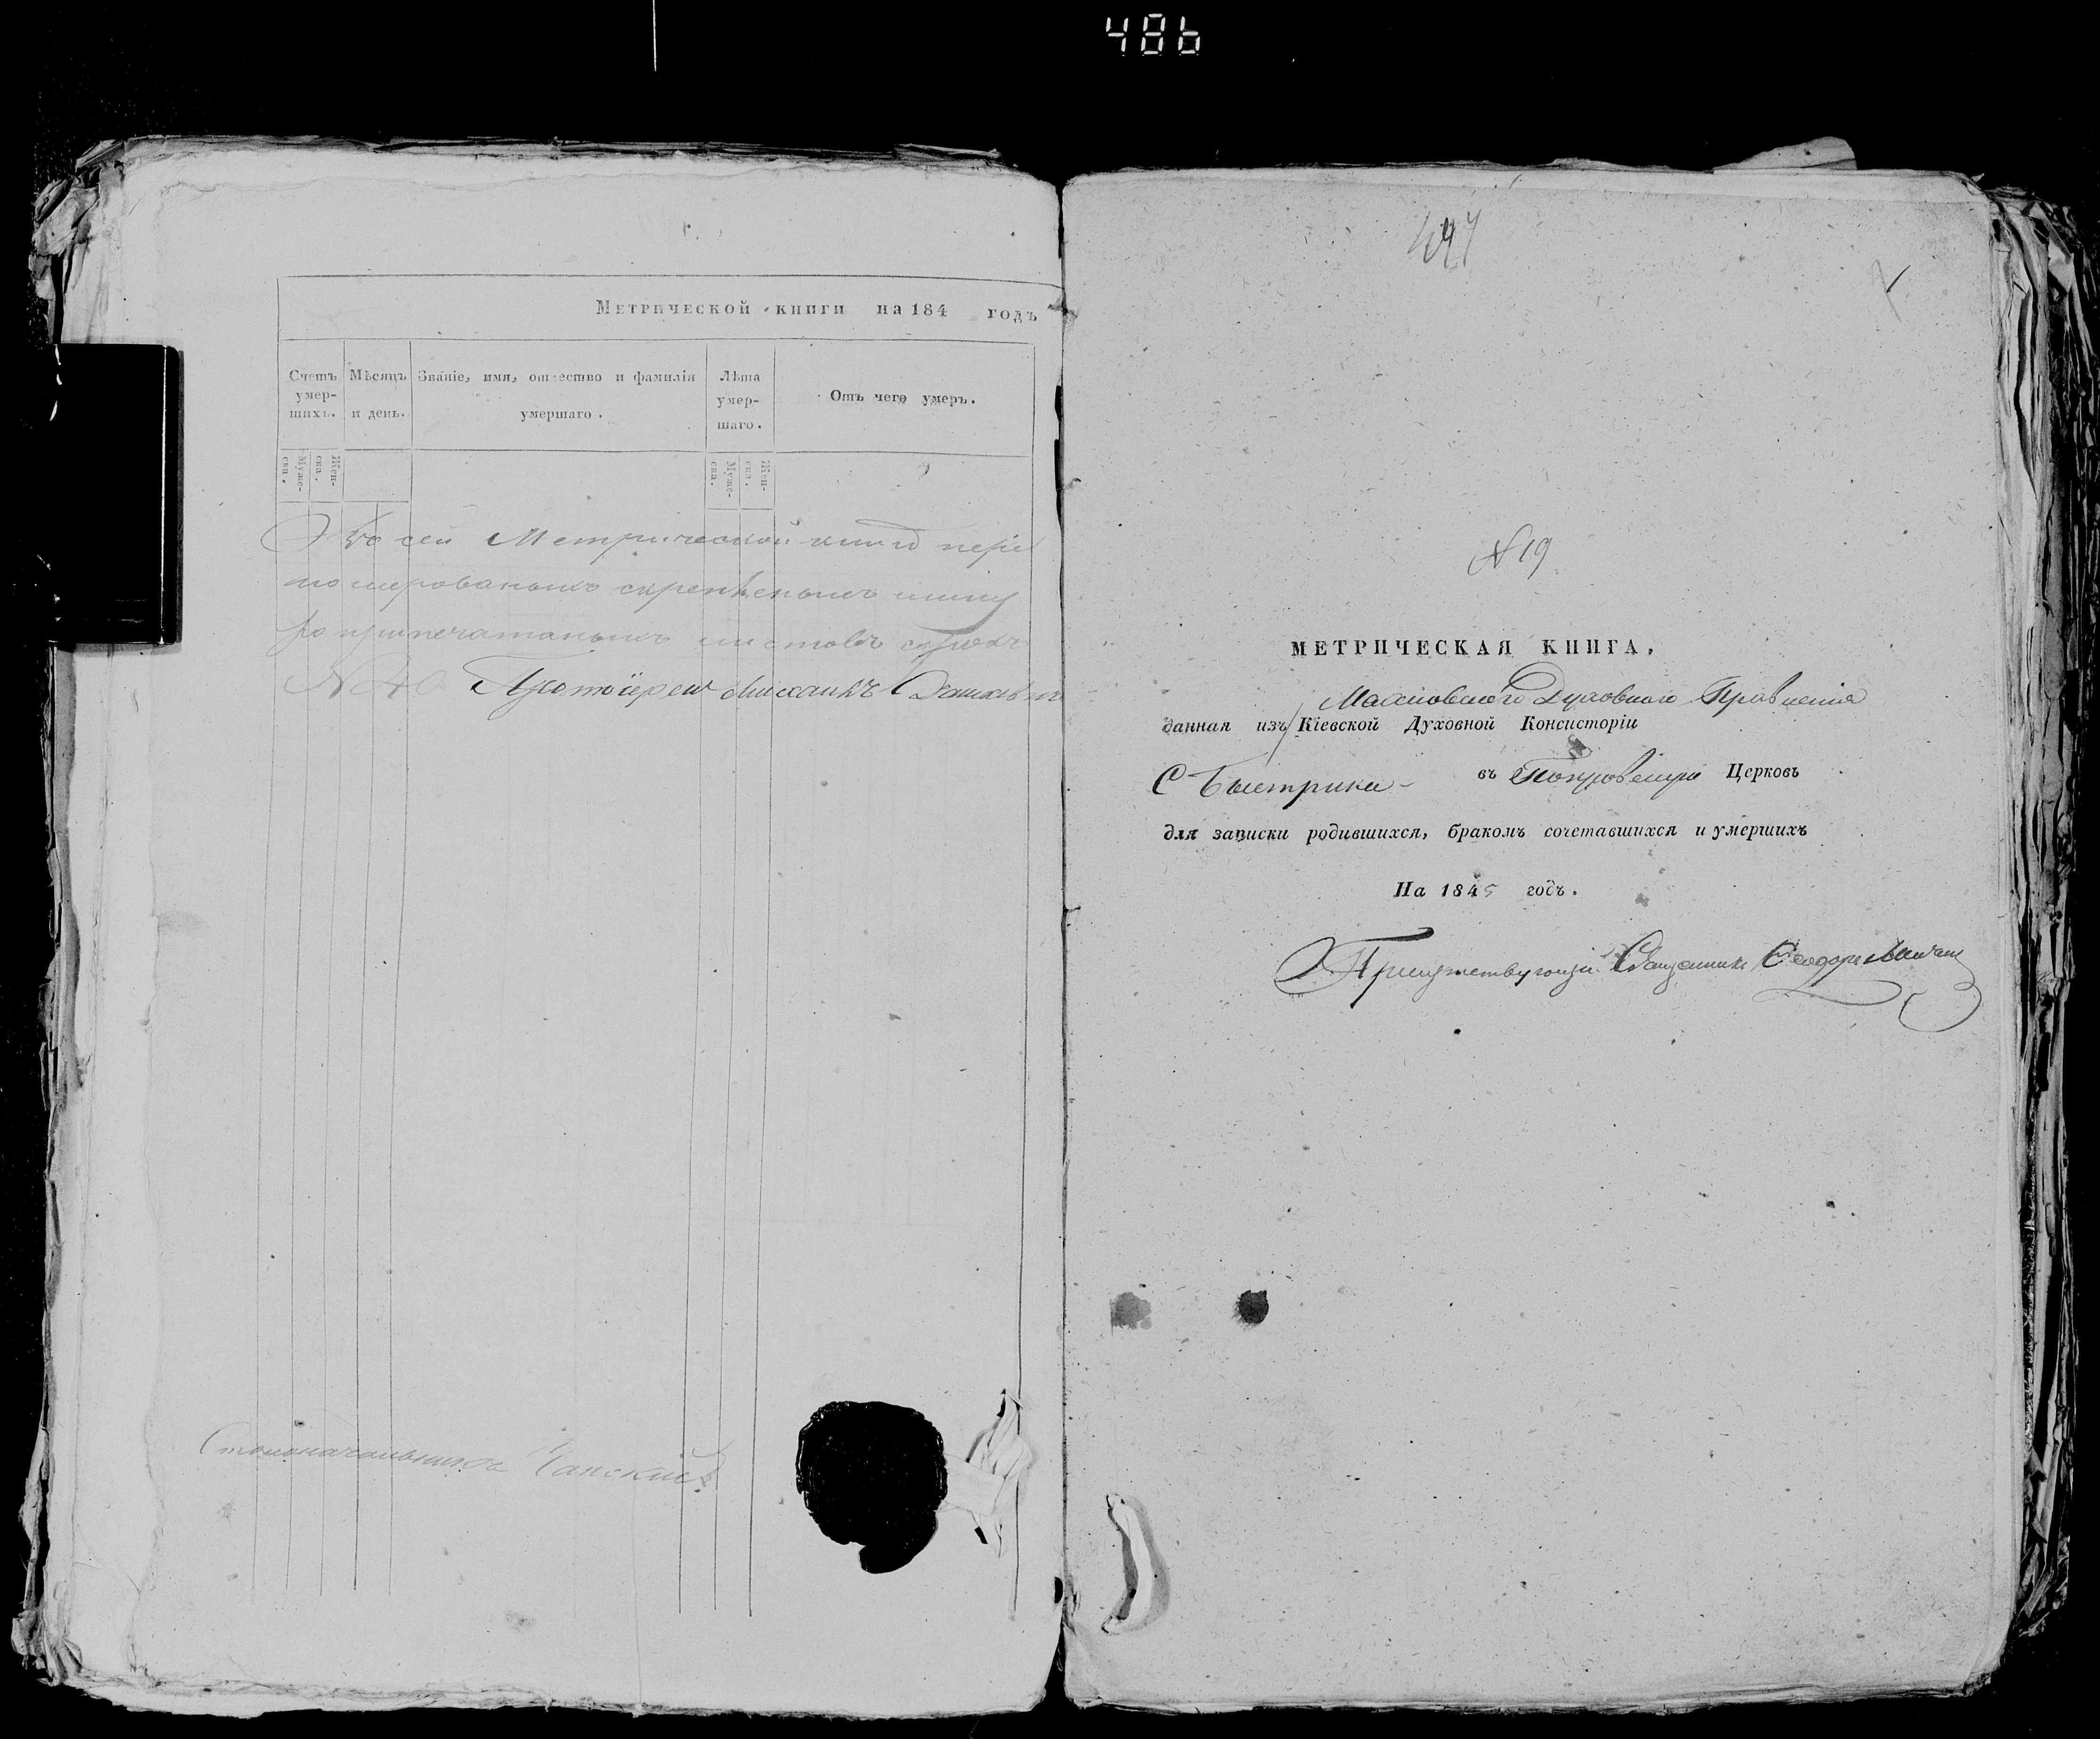 486
Метрической книги на 184 годъ
Счетъ умер-шихъ.
Мѣсяцъ и день.
Званіе, имя, отчество и фамилія умершаго.
Лѣта умер-шаго.
Отъ чего умеръ.
Муже-ска.
Жен-ска.
Муже-ска.
Жен-ска.
Въ сей Метрической книгѣ
листовъ сорокъ
N 40 Протоіерей Михаилъ
Столоначальникъ
N 19
МЕТРИЧЕСКАЯ КНИГА,
Махновского Духовного Правленія
данная изъ Кіевской Духовной Консисторіи
С Быстрика - въ Покровскую Церковь
для записки родившихся, бракомъ сочетавшихся и умершихъ
На 1845 годъ.
Присутствующій Священникъ Ѳеодоръ